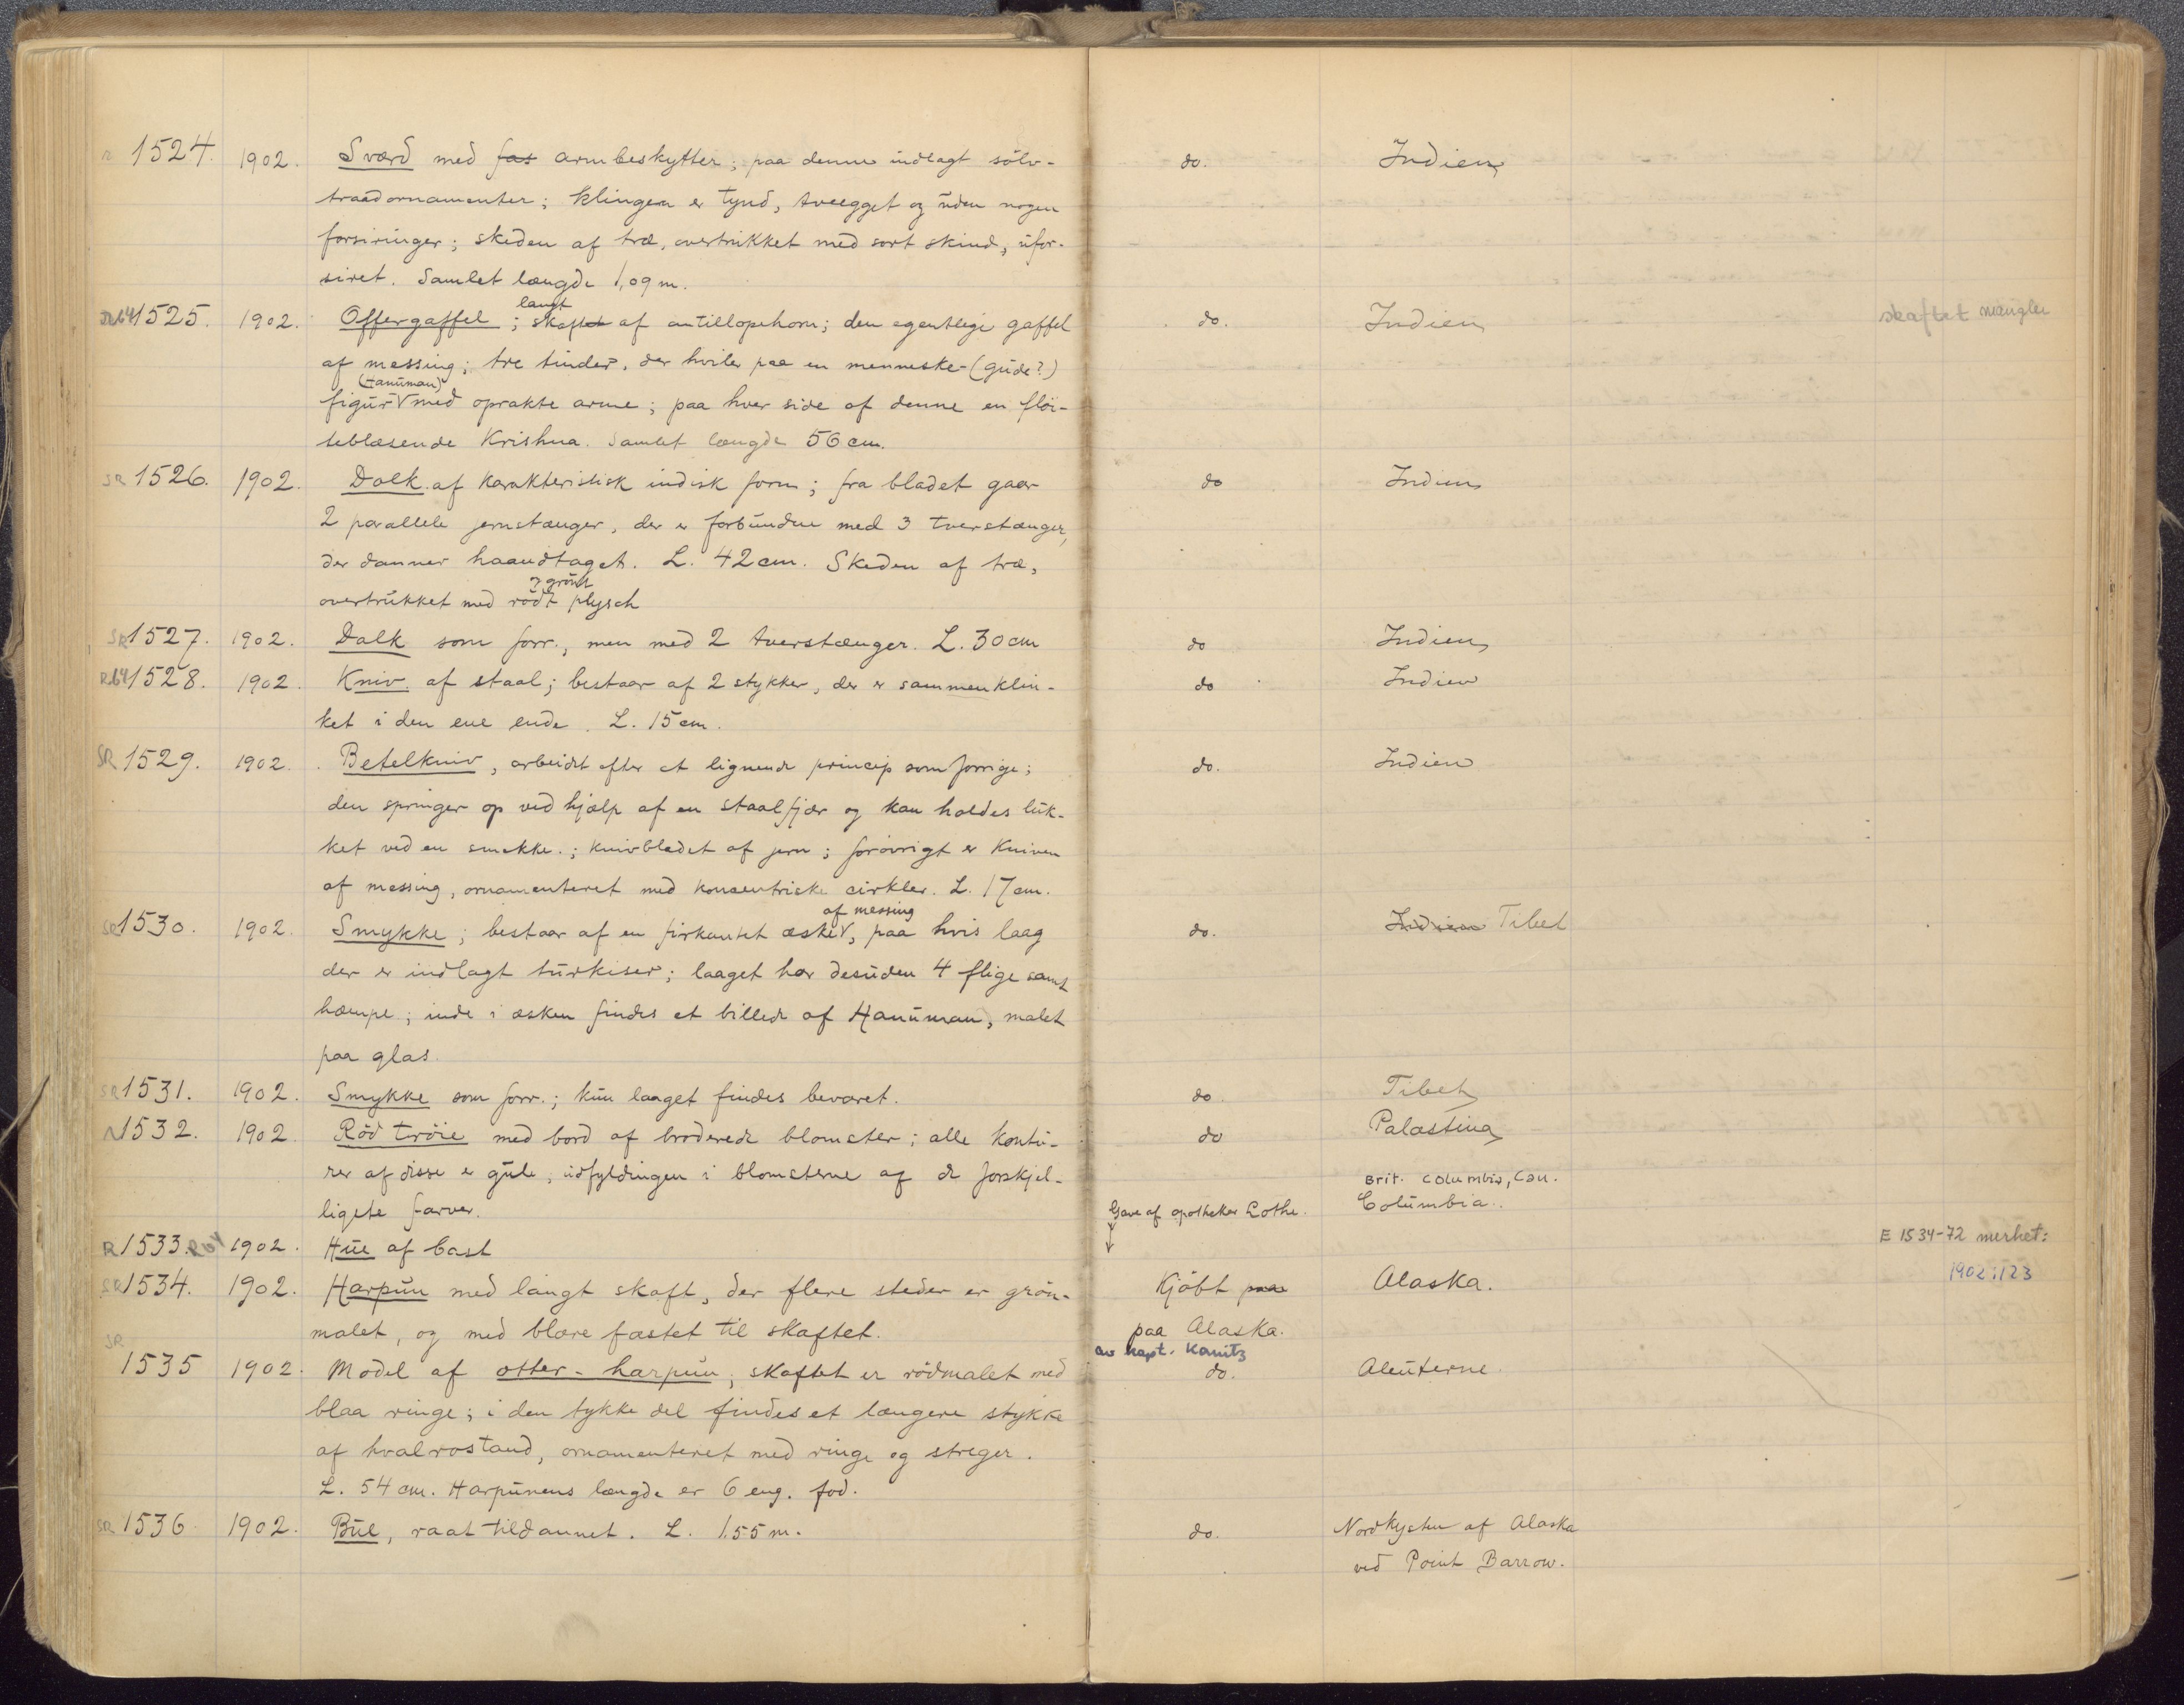 R 1524. 1902. Sværd med fas armbeskytter; paa denne indlagt sölv- do. Indien
traadornamenter; klingen er tynd, tveegget og uden nogen
forsiringer; skeden af træ, overtrukket med sort skind, ufor-
siret. Samlet længde 1,09 m.
langt
R64 1525. 1902. Offergaffel; skaftet af antillopehorn; den egentlige gaffel do. Indien skaftet mangler
af messing; tre tinder, der hviler paa en menneske-(gude?)
(Hanuman)
figur V med oprakte arme; paa hver side af denne en flöi-
teblæsende Krishna. Samlet længde 56 cm.
SR 1526. 1902. Dolk af karakteristisk indisk form; fra bladet gaar do Indien
2 parallele jernstænger, der er forbundne med 3 tverstænger,
der danner haandtaget. L. 42 cm. Skeden af træ,
og grönt
overtrukket med rödt plysch
SR 1527. 1902. Dolk som forr., men med 2 tverstænger. L. 30 cm do Indien
R64 1528. 1902. Kniv af staal; bestaar af 2 stykker, der er sammenklin- do Indien
ket i den ene ende. L. 15 cm.
SR 1529. 1902. Betelkniv, arbeidet efter et lignende princip som forrige; do. Indien
den springer op ved hjælp af en staalfjær og kan holdes luk-
ket ved en smekke.; knivbladet af jern; forövrigt er kniven
af messing, ornamenteret med koncentriske cirkler. L. 17 cm.
af messing
SR 1530. 1902. Smykke; bestaar af en firkantet æske V, paa hvis laag do. Indien Tibet
der er indlagt turkiser; laaget har desuden 4 flige samt
hæmpe; inde i æsken findes et billede af Hanuman, malet
paa glas.
SR 1531. 1902. Smykke som forr.; kun laaget findes bevaret. do. Tibet
R 1532. 1902 Röd tröie med bord af broderede blomster; alle kontu- do Palæstina
rer af disse er gule; udfyldningen i blomsterne af de forskjel- Brit. Columbia, Can.
ligste farver. Gave af apotheker Lothe. Columbia.
R 1533. R64 1902. Hue af bast E 1534-72 merket:
SR 1534. 1902. Harpun med langt skaft, der flere steder er grön- Kjöbt paa Alaska. 1902:123
malet, og med blære fæstet til skaftet. paa Alaska.
av kapt. Kanitz
SR 1535 1902. Model af otter-harpun; skaftet er rödmalet med do. Aleuterne.
blaa ringe; i den tykke del findes et længere stykke
af hvalrostand, ornamenteret med ringe og streger.
L. 54 cm. Harpunens længde er 6 eng. fod.
SR 1536 1902. Bue, raat tildannet. L. 1.55 m. do. Nordkysten af Alaska
ved Point Barrow.